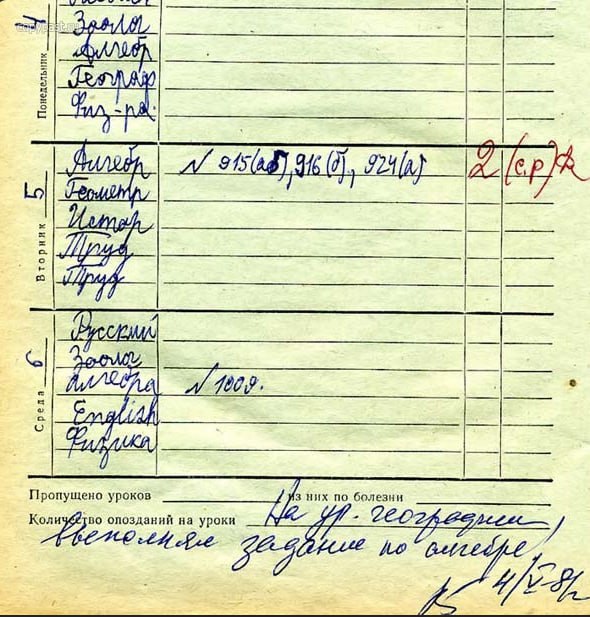 Понедельник 4
Зоолог
Алгебр
Географ
Физ-ра.
Вторник 5
Алгебр N 915(аб), 916(б), 924(а) 2 (с.р)
Геометр
Истор
Труд
Труд
Среда 6
Русский
Зоолог
Алгебра N 1009.
English
Физика
Пропущено уроков из них по болезни
Количество опозданий на уроки На ур. географии
выполнял задание по алгебре
4/V-8